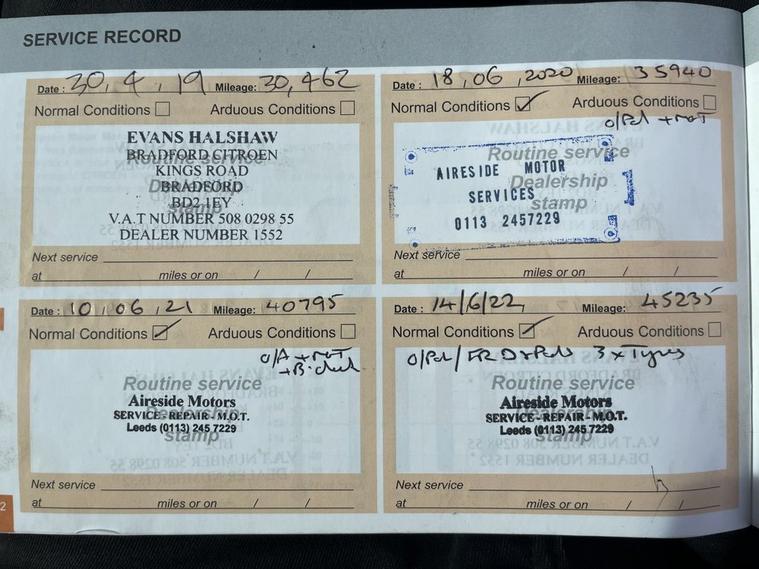 SERVICE RECORD
Date : 30, 4, 19 Mileage: 30,462
Normal Conditions Arduous Conditions
EVANS HALSHAW
BRADFORD CITROEN
KINGS ROAD
BRADFORD
BD2 1EY
V.A.T NUMBER 508 0298 55
DEALER NUMBER 1552
Routine service
Dealership
stamp
Next service
at miles or on / /
Date : 18,06,2020 Mileage: 35940
Normal Conditions Arduous Conditions
+ MOT
Routine service
Dealership
stamp
AIRESIDE MOTOR
SERVICES
0113 2457229
Next service
at miles or on / /
Date : 10,06,21 Mileage: 40795
Normal Conditions Arduous Conditions
O/A + MOT
Routine service
stamp
Aireside Motors
SERVICE - REPAIR - M.O.T.
Leeds (0113) 245 7229
Next service
at miles or on / /
Date : 14/6/22 Mileage: 45235
Normal Conditions Arduous Conditions
3 x Tyres
Routine service
Dealership
stamp
Aireside Motors
SERVICE - REPAIR - M.O.T.
Leeds (0113) 245 7229
Next service
at miles or on / /
2